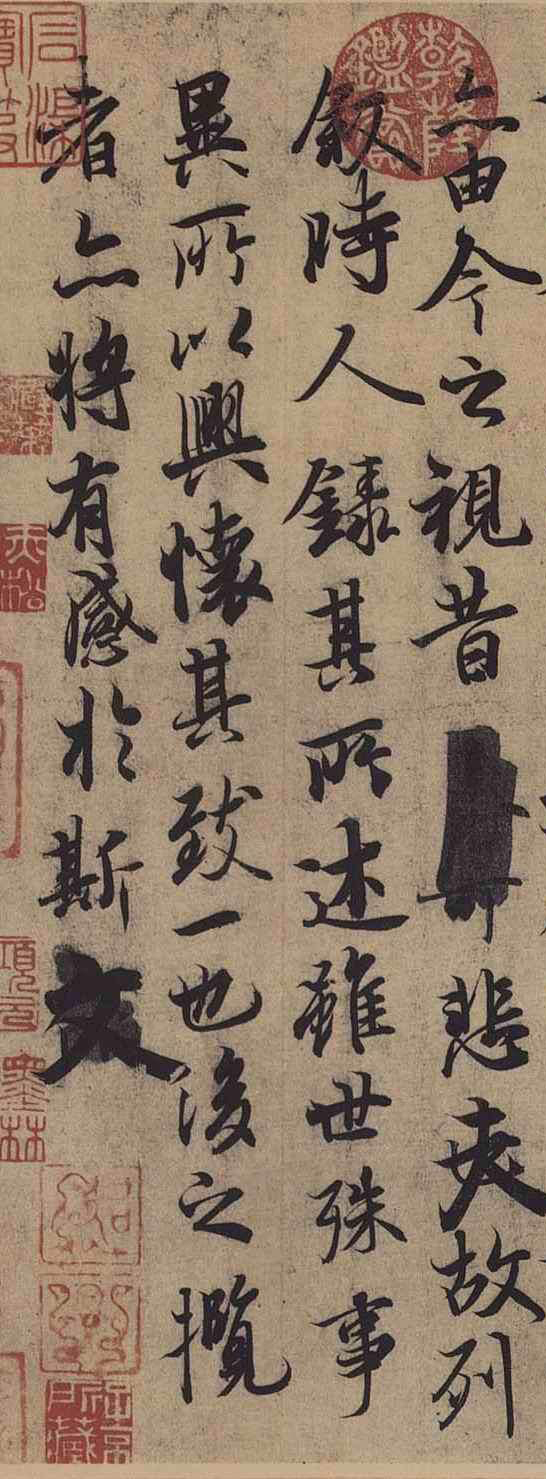 亦由今之視昔悲夫故列
敘時人錄其所述雖世殊事
異所以興懷其致一也後之攬
者亦將有感於斯文
乾隆鑑賞
墨林